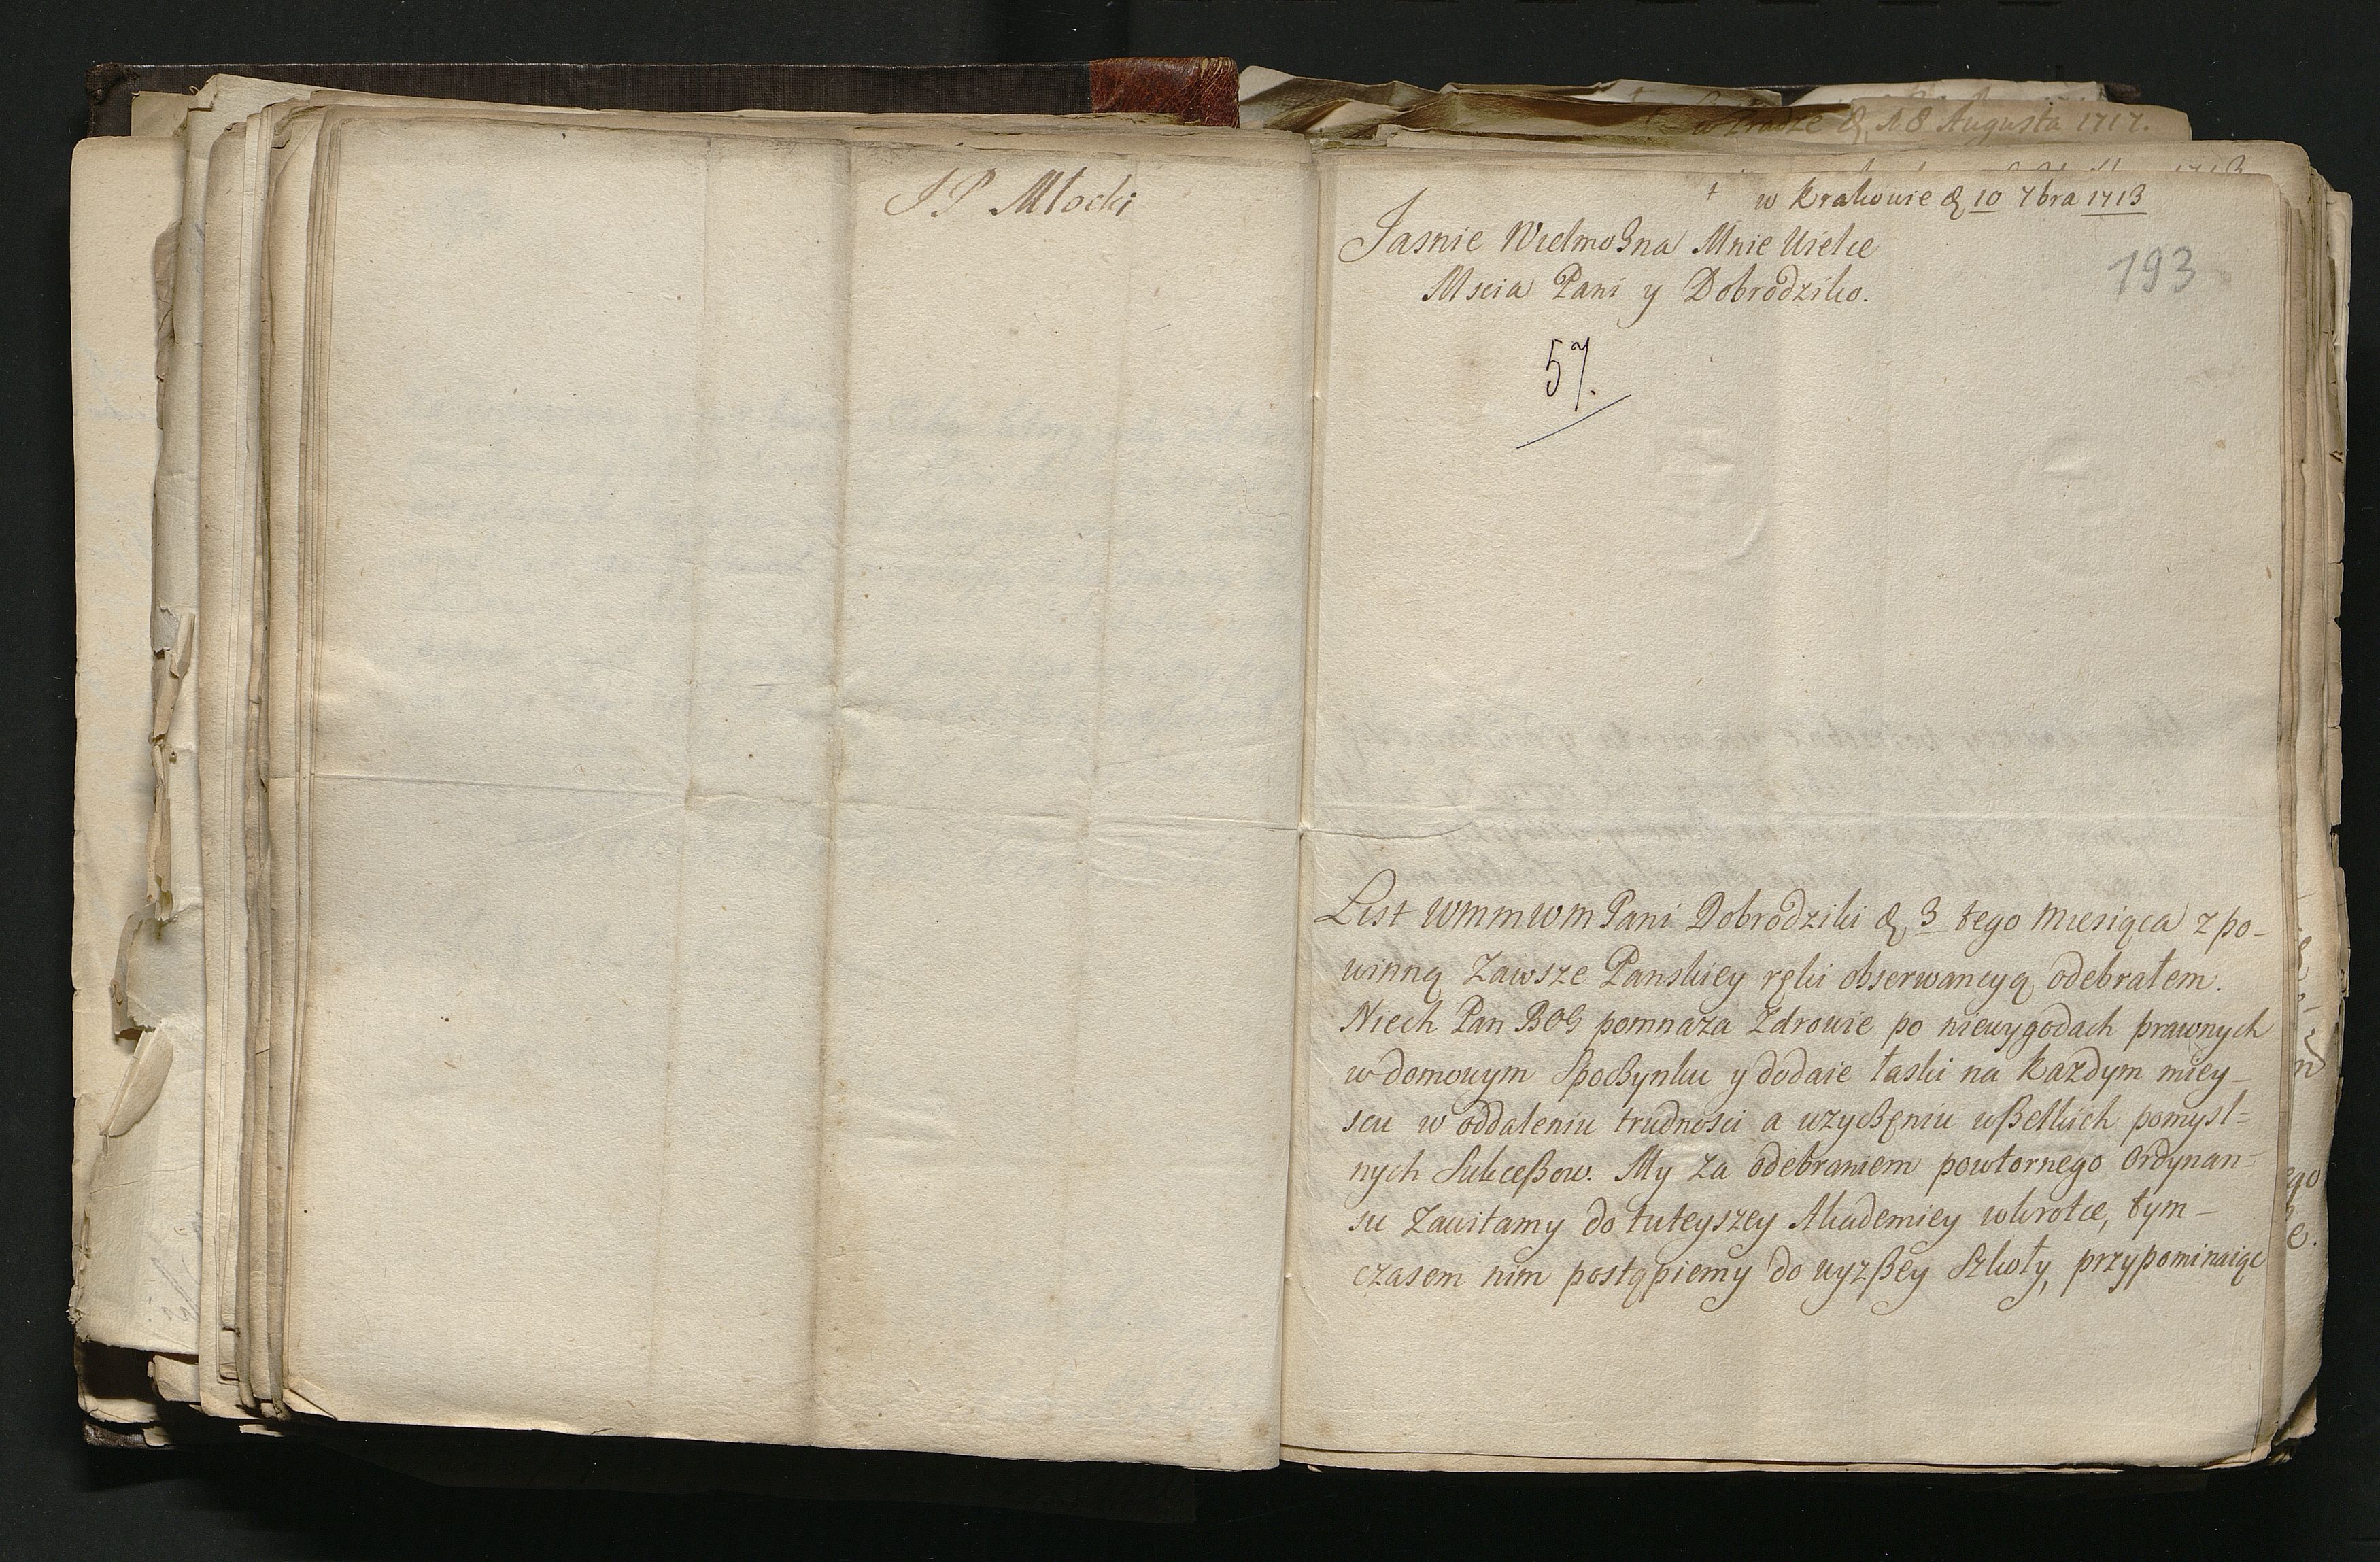 J P Młocki
w Pradze d. 18 Augusta 1717.
† w Krakowie d 10 7bra 1713
Jasnie Wielmożna Mnie Wielce
Mscia Pani y Dobrodziko.
193
57.
List WMMWM Pani Dobrodziki d 3 tego miesiąca z po-
winną zawsze Panskiey ręki obserwancyą odebrałem.
Niech Pan BOG pomnaza Zdrowie po niewygodach prawnych
w domowym spoczynku y dodaie łaski na kazdym miey-
scu w oddaleniu trudnosci a uzyczęniu wßelkich pomysl=
nych Sukceßow. My za odebraniem powtornego Ordynan=
su Zawitamy do tuteyszey Akademiey wkrotce, tym-
czasem nim postąpiemy do wyzßey Szkoły, przypominaiąc